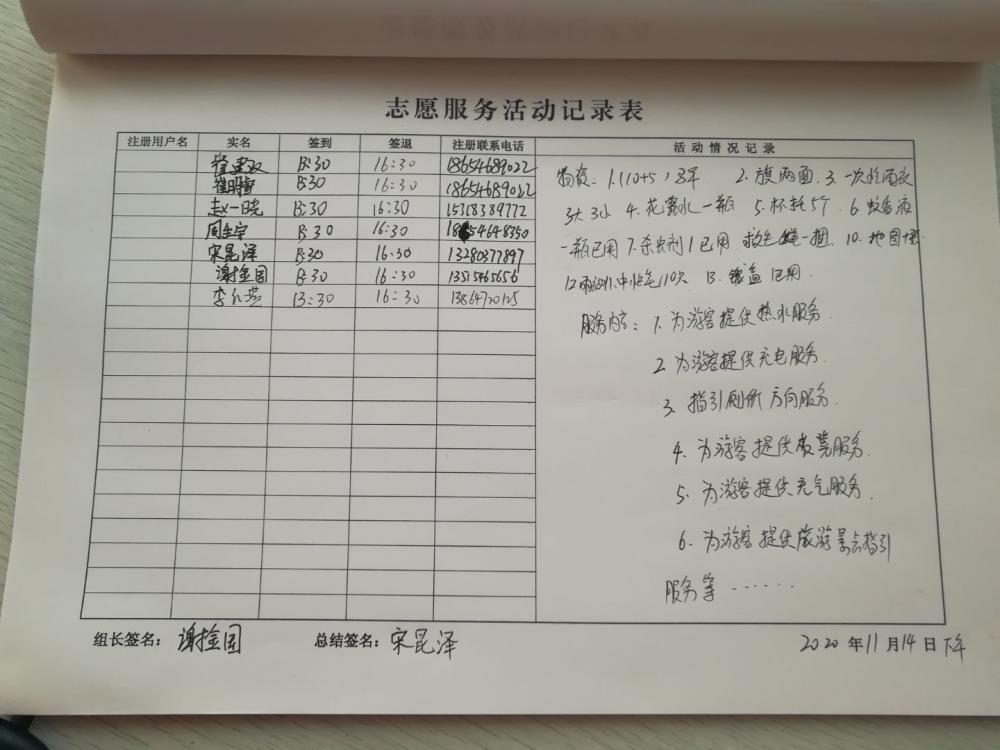 志愿服务活动记录表
注册用户名 实名 签到 签退 注册联系电话 活动情况记录
13:30 16:30 18654689022
13:30 16:30 18654689022
赵一晓 13:30 16:30 15318389772
13:30 16:30
宋昆泽 13:30 16:30 13280377897
谢金国 13:30 16:30 13515465656
李红燕 13:30 16:30
物资: 1.(10+5)3军 2.旗两面.3.一次性雨衣
3大3小 4.花露水一瓶 5.杯托5个 6.蚊香液
一瓶已用 7.杀虫剂1已用 救生绳一捆 10.地图
110次 13. 已用.
服务内容: 1.为游客提供热水服务.
2.为游客提供充电服务.
3.指引厕所方向服务.
4.为游客提供服务.
5.为游客提供充气服务.
6.为游客提供旅游景点指引
服务等……
组长签名: 谢金国 总结签名: 宋昆泽 2020年11月14日下午